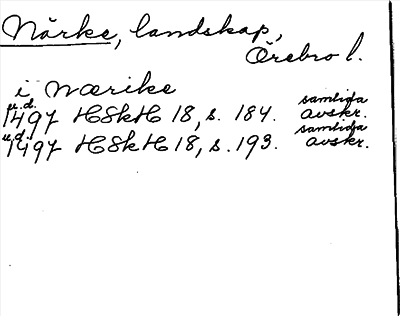 Närke, landskap,
Örebro l.
i Nærike
u.d. 1497 HSkH 18, s. 184. samtida avskr.
u.d. 1497 HSkH 18, s. 193. samtidja avskr.